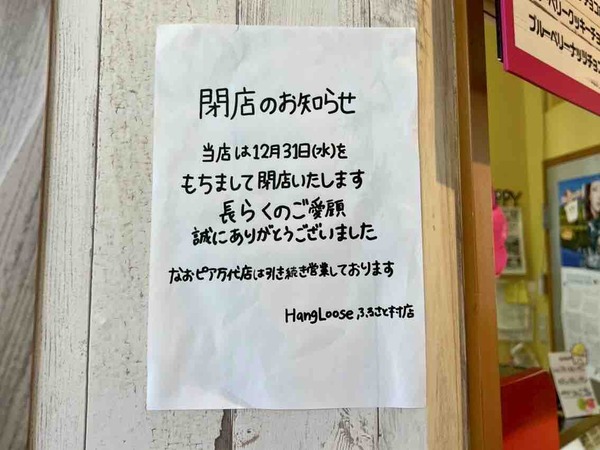 閉店のお知らせ
当店は12月31日(水)を
もちまして閉店いたします
長らくのご愛顧
誠にありがとうございました
なおピア万代店は引き続き営業しております
HangLoose ふるさと村店
ベリークッキーチョ
ブルーベリーナッツチョコ
PPY